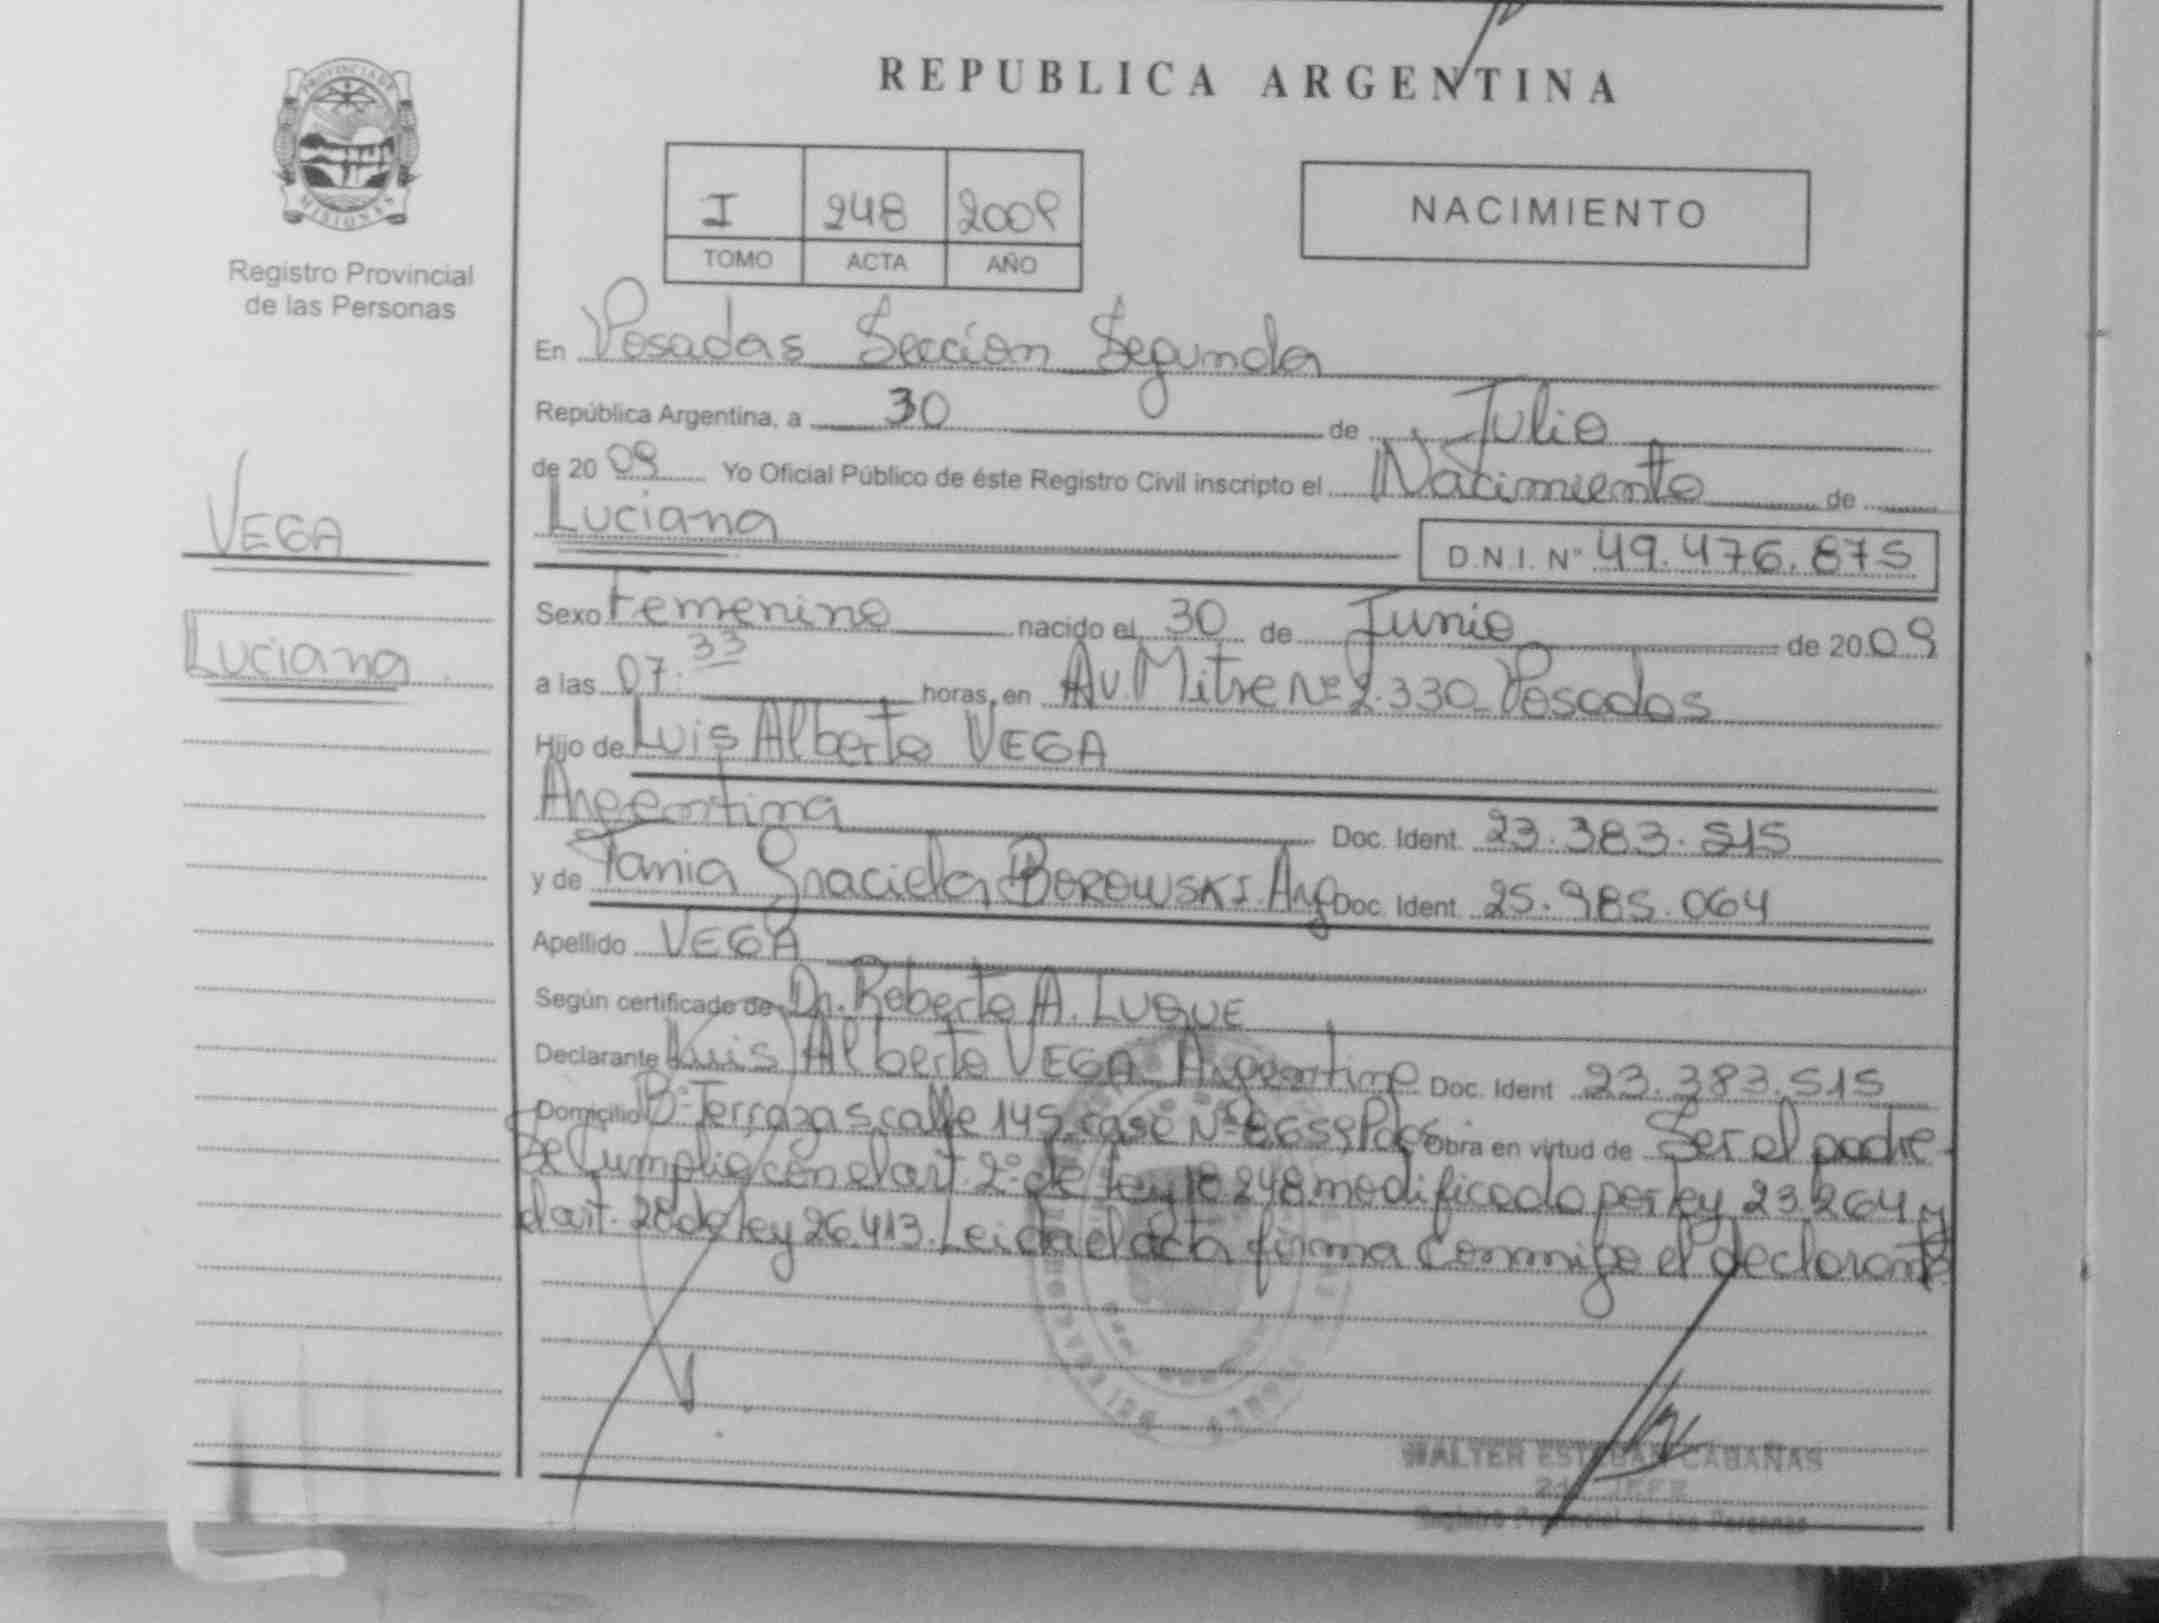 PROVINCIA DE
MISIONES
Registro Provincial
de las Personas
VEGA
Luciana
REPUBLICA ARGENTINA
I 248 2009
TOMO ACTA AÑO
NACIMIENTO
En Posadas Sección Segunda
República Argentina, a 30 de Julio
de 2009 Yo Oficial Público de éste Registro Civil inscripto el Nacimiento de
Luciana D.N.I. Nº 49.476.875
Sexo Femenino nacido el 30 de Junio de 2009
a las 07.33 horas, en Av. Mitre Nº 2.330 Posadas
Hijo de Luis Alberto VEGA
Argentina Doc. Ident. 23.383.515
y de Tania Graciela BOROWSKI. Arg Doc. Ident. 25.985.064
Apellido VEGA
Según certificado de Dr. Roberto A. LUQUE
Declarante Luis Alberto VEGA Argentino Doc. Ident 23.383.515
Domicilio Bº Terrazas calle 145 casa Nº 8659 Pdas Obra en virtud de Ser el padre
Se Cumplio con el art. 2º de ley 18.248 modificado por ley 23.264 y
el art. 28 de ley 26.413. Leida el acta firma conmigo el declarante
WALTER ESTEBAN CABAÑAS
JEFE
Registro Provincial de las Personas